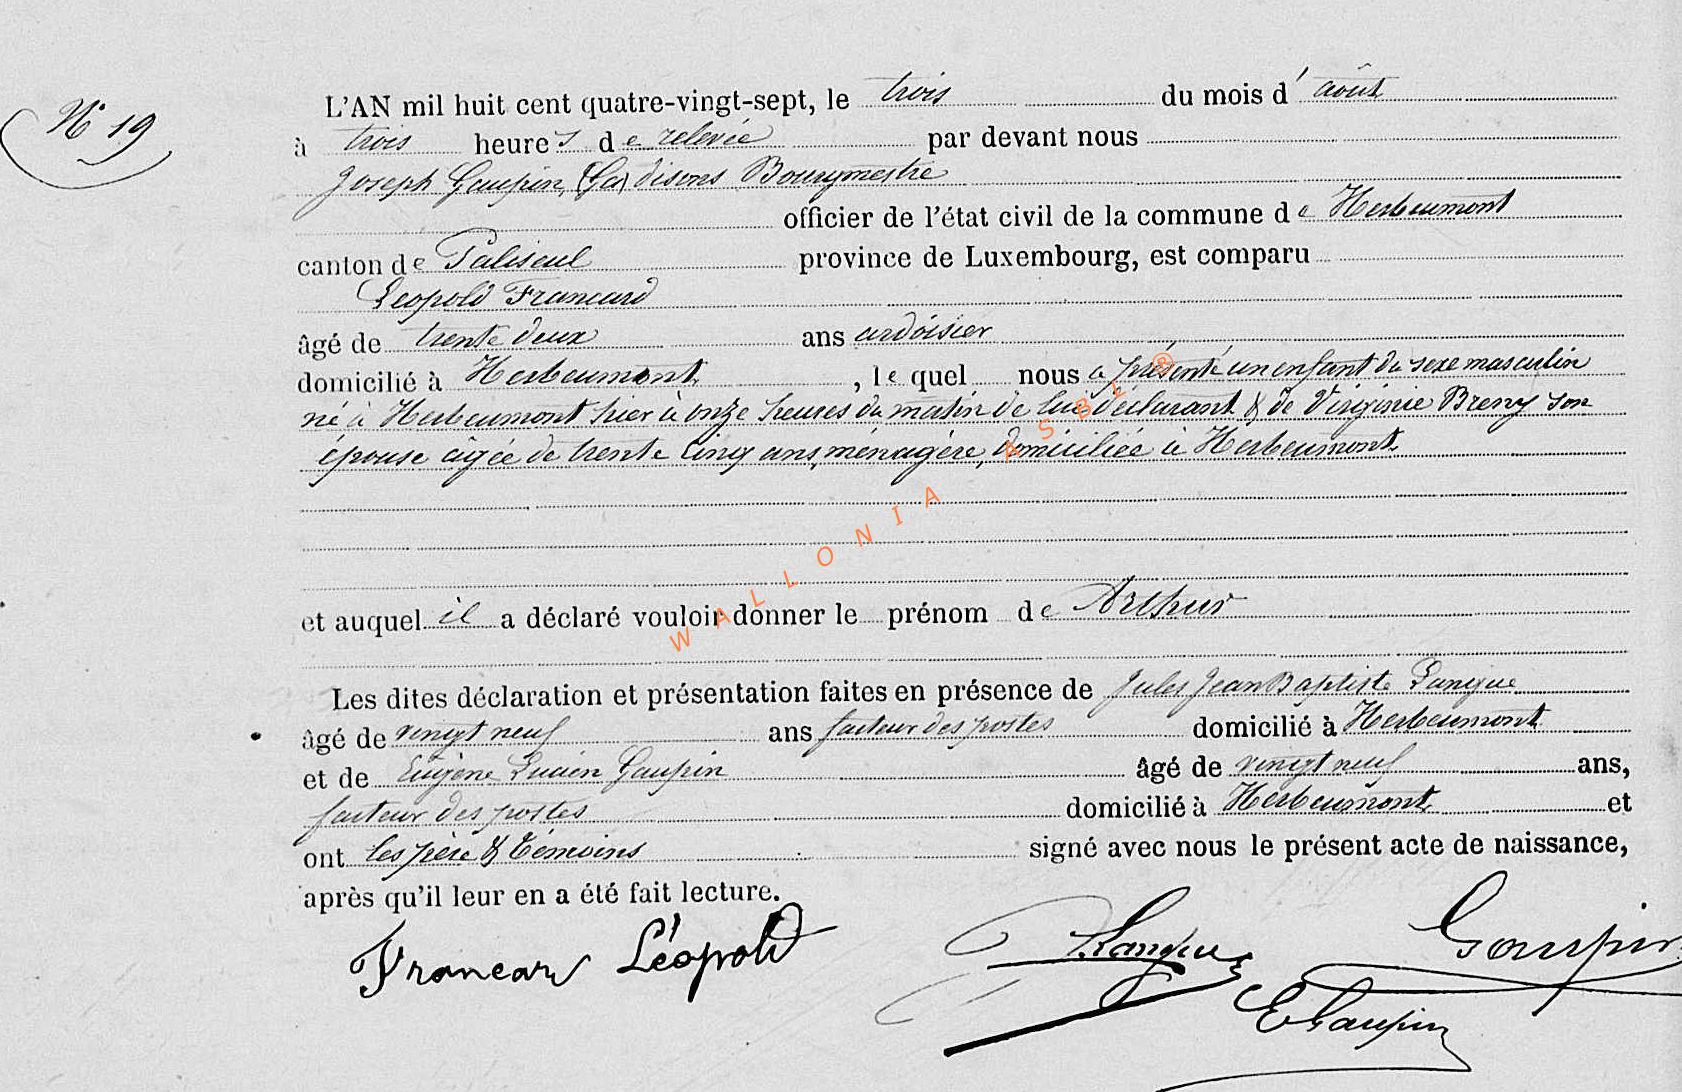 N° 19
L'AN mil huit cent quatre-vingt-sept, le trois du mois d'août
à trois heures de relevée par devant nous
Joseph Gaupin, (Ga) disons Bourgmestre
officier de l'état civil de la commune de Herbeumont
canton de Paliseul province de Luxembourg, est comparu
Léopold Francard
âgé de trente deux ans ardoisier
domicilié à Herbeumont, le quel nous a présenté un enfant du sexe masculin
né à Herbeumont hier à onze heures du matin de lui déclarant & de Virginie Breny son
épouse âgée de trente cinq ans, ménagère, domiciliée à Herbeumont.
et auquel il a déclaré vouloir donner le prénom de Arthur
Les dites déclaration et présentation faites en présence de Jules Jean Baptiste Lanque
âgé de vingt neuf ans facteur des postes domicilié à Herbeumont
et de Eugène Lucien Gaupin âgé de vingt neuf ans,
facteur des postes domicilié à Herbeumont et
ont les père & témoins signé avec nous le présent acte de naissance,
après qu'il leur en a été fait lecture.
Francard Léopold
Gaupin
E Gaupin
WALLONIA ASBL ®